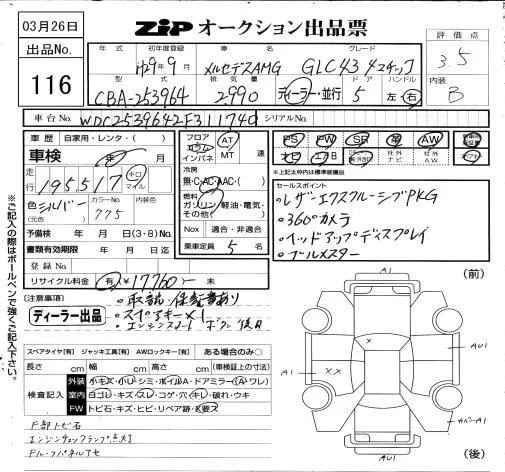 03月26日
出品No.
116
ZIP オークション出品票
評価点
3.5
内装
B
年式 初年度登録 車名 グレード
H29年9月 メルセデスAMG GLC43 4マチック
型式 排気量 ドア ハンドル
CBA-253964 2.990 ディーラー・並行 5 左・右
車台No. WDC2539642F311740 シリアルNo.
車歴 自家用・レンタ・( )
車検 年 月
走行 195517 キロ マイル
色(元色) シルバー カラーNo. 775 内装色
予備検 年 月 日(3・8)No.
書類有効期限 年 月 日迄
登録No.
リサイクル料金 有 ¥17760- 未
フロア コラム インパネ AT MT 速
冷房
無・C・AC・AAC・( )
燃料
ガソリン・軽油・電気・その他( )
Nox 適合・非適合
乗車定員 5 名
PS PW SR 革 AW
ナビ エアB 社外ナビ 社外AW
※上記太枠内は標準装備品
セールスポイント
・レザーエクスクルーシブPKG
・360°カメラ
・ヘッドアップディスプレイ
・ブルメスター
(注意事項)
ディーラー出品
・取説・保証書あり
・スペアキー×1
・エンジンスタートボタン後日
スペアタイヤ[有] ジャッキ工具[有] AWロックキー[有] ある場合のみ○
長さ cm 幅 cm 高さ cm (車検証上の寸法)
検査記入
外装 小キズ・小ヘコ・シミ・ホイルA・ドアミラー(A・ワレ)
室内 ヨゴレ・キズ・スレ・コゲ・穴・キレ・破れ・ウキ
FW トビ石・キズ・ヒビ・リペア跡・X要ス
F部トビ石
エンジンチェックランプ点灯
Fルーフパネルアセ
※ご記入の際はボールペンで強くご記入下さい。
(前)
AU1
A1
A1
××
×
AU1
カバーA1
(後)